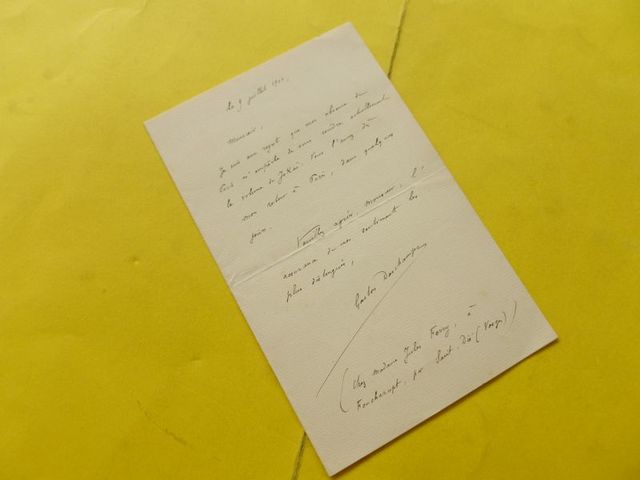 Le 9 juillet
Monsieur,
Je vois avec regret que mon absence de
Paris m'empêche de vous rendre actuellement
le volume de Jókai. Vous l'aurez dès
mon retour à Paris, dans quelques
jours.
Veuillez agréer, monsieur, l'
assurance de mes sentiments les
plus distingués,
Gaston Deschamps
(Chez madame Jules Ferry, à
Foucharupt, par Saint-Dié (Vosges))